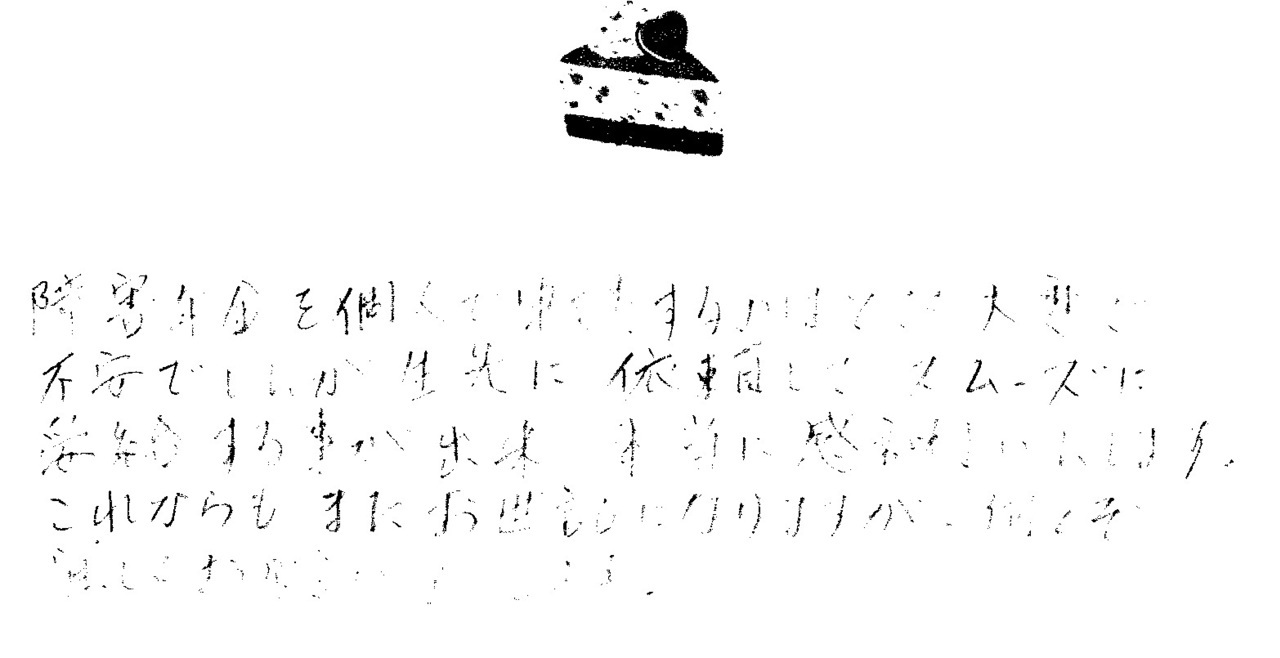 障害年金を個人で申請するのはとても大変で
不安でしたが 先生に 依頼して スムーズに
受給する事が出来 本当に感謝をいたします。
これからも またお世話になりますが、何とぞ
宜しくお願い します。